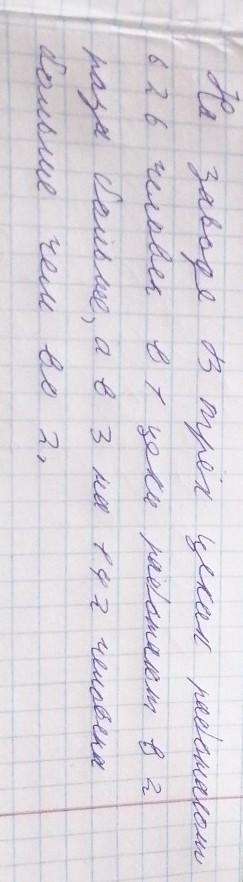 На заводе В трёх цехах работают
626 человек в 1 цехе работают в 2
раза больше, а в 3 на 142 человека
больше чем во 2,